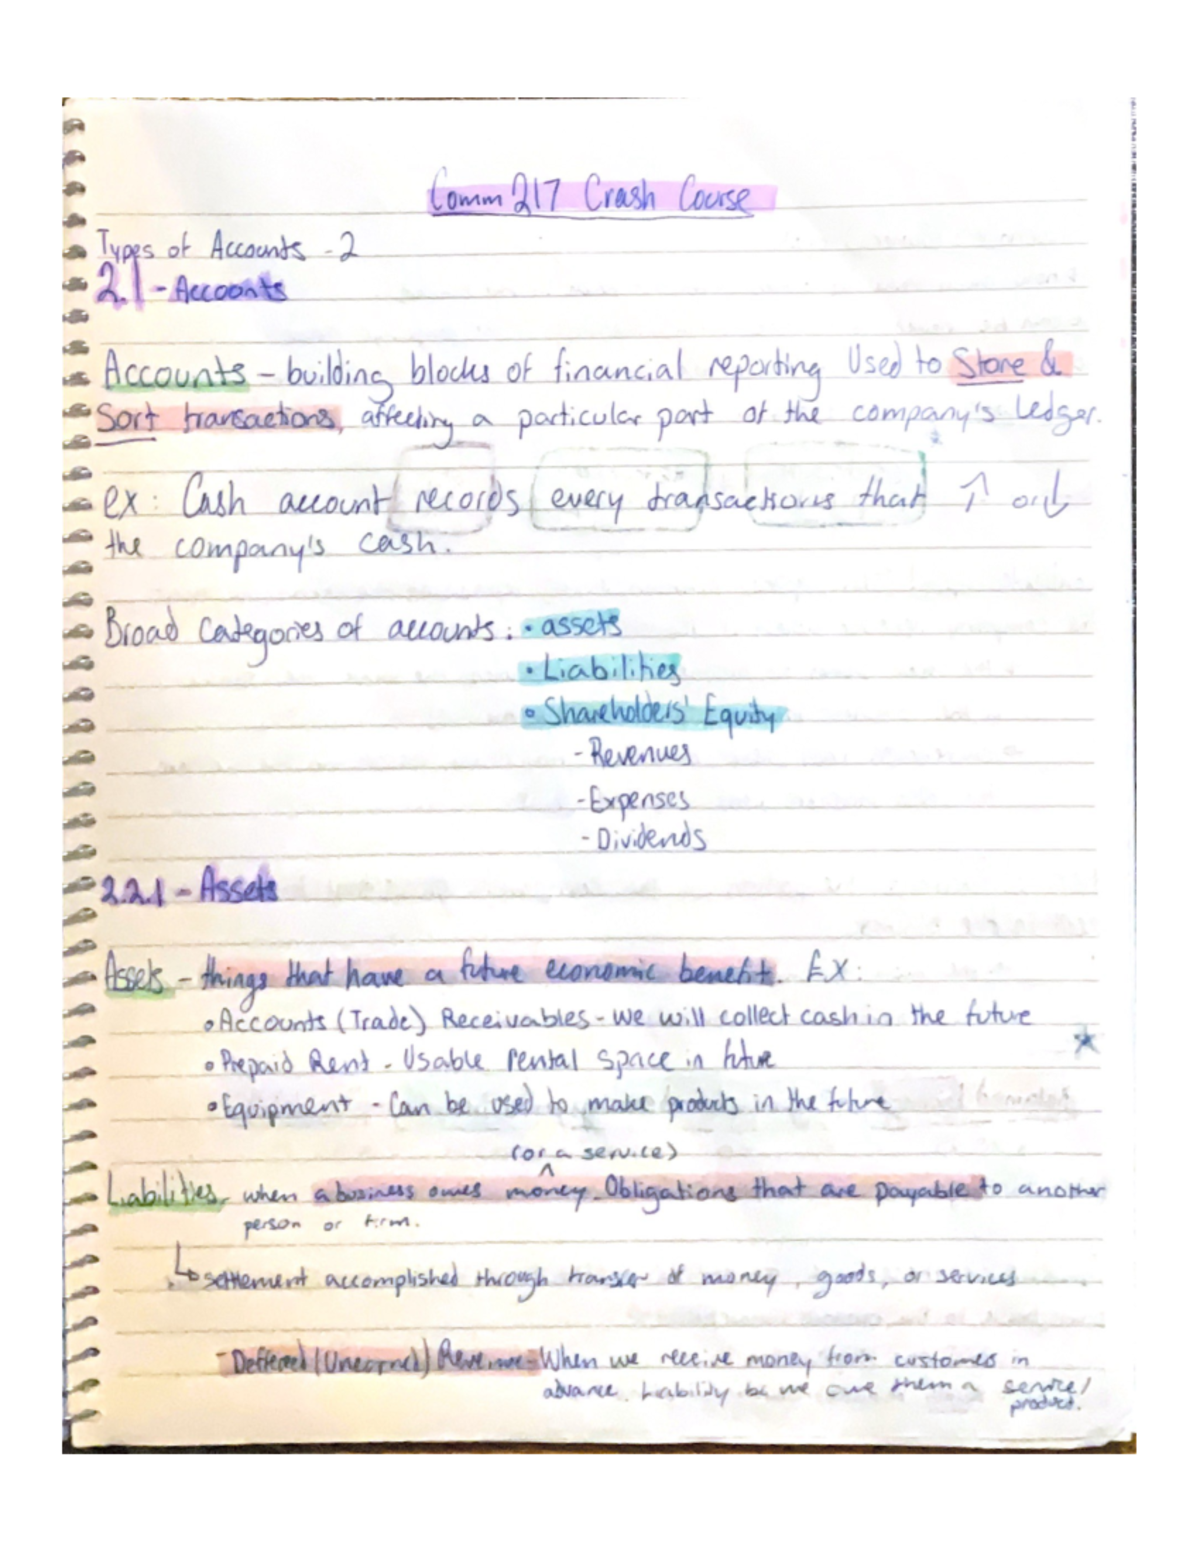 Comm 217 Crash Course
Types of Accounts - 2
2.1 - Accounts
Accounts - building blocks of financial reporting Used to Store &
Sort transactions, affecting a particular part of the company's Ledger.
ex: Cash account records every transactions that ↑ or ↓
the company's cash.
Broad Categories of accounts: • assets
• Liabilities
• Shareholders' Equity
- Revenues
- Expenses
- Dividends
2.2.1 - Assets
Assets - things that have a future economic benefit. EX:
• Accounts (Trade) Receivables - we will collect cash in the future
• Prepaid Rent - Usable rental space in future
• Equipment - Can be used to make products in the future
(or a service)
Liabilities, when a business owes money. Obligations that are payable to another
person or firm.
↳ settlement accomplished through transfer of money, goods, or services
- Deffered (Unearned) Revenue - When we receive money from customers in
advance. Liability bc we owe them a service/
product.